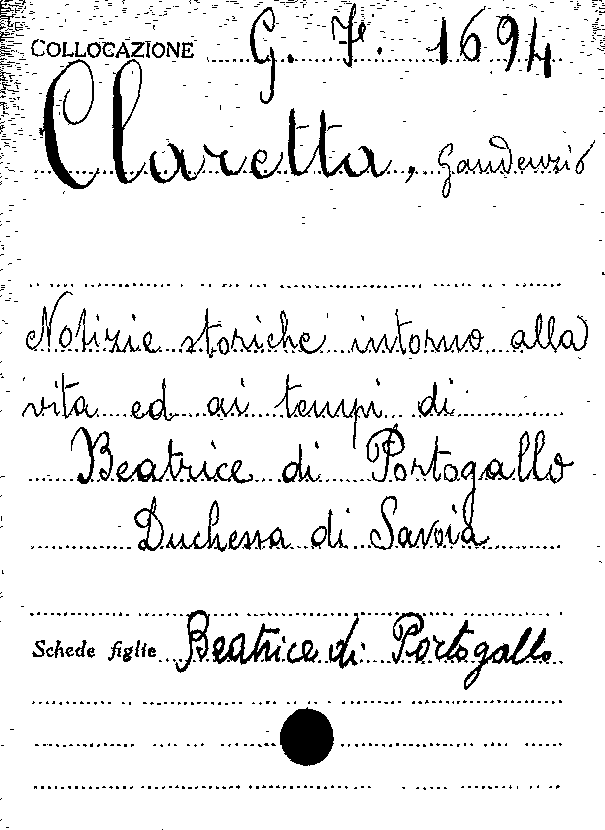 COLLOCAZIONE G. Fe. 1694
Claretta, Gaudenzio
Notizie storiche intorno alla
vita ed ai tempi di
Beatrice di Portogallo
Duchessa di Savoia
Schede figlie Beatrice di Portogallo